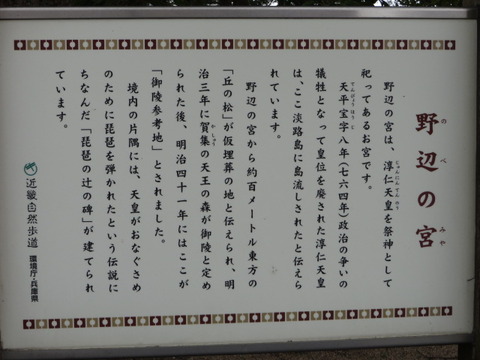 野辺の宮
のべみや
野辺の宮は、淳仁天皇を祭神として
じゅんにんてんのう
祀ってあるお宮です。
天平宝字八年(七六四年)政治の争いの
てんぴょうほうじ
犠牲となって皇位を廃された淳仁天皇
は、ここ淡路島に島流しされたと伝えら
れています。
野辺の宮から約百メートル東方の
「丘の松」が仮埋葬の地と伝えられ、明
治三年に賀集の天王の森が御陵と定め
かしゅう
られた後、明治四十一年にはここが
「御陵参考地」とされました。
境内の片隅には、天皇がおなぐさめ
のために琵琶を弾かれたという伝説に
ちなんだ「琵琶の辻の碑」が建てられ
ています。
近畿自然歩道
環境庁・兵庫県